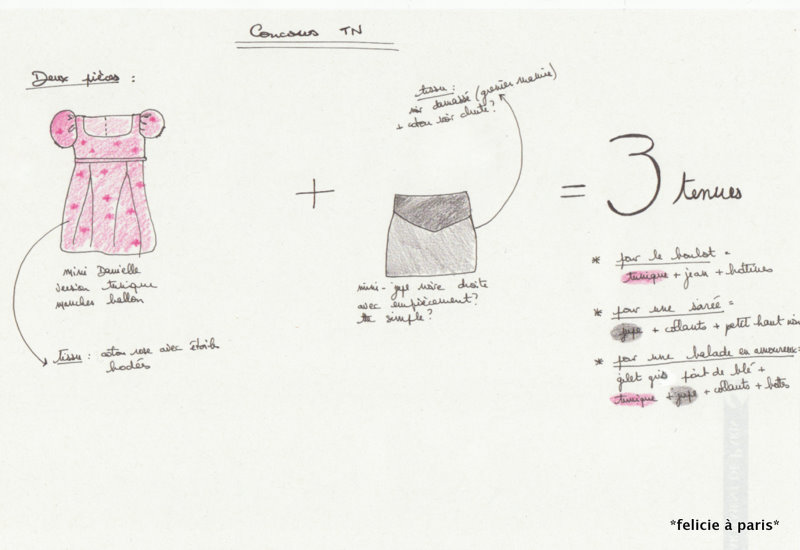 Concours TN
Deux pièces :
tissu :
noir damassé (grenier mamie)
+ coton noir chute ?
+
= 3 tenues
mini Danielle
version tunique
manches ballon
mini-jupe noire droite
avec empiècement ?
simple ?
tissu : coton rose avec étoiles
brodés
* pour le boulot =
tunique + jean + bottines
* pour une soirée =
jupe + collants + petit haut noir
* pour une balade en amoureux :
gilet gris point de blé +
tunique + jupe + collants + bottes
*felicie à paris*